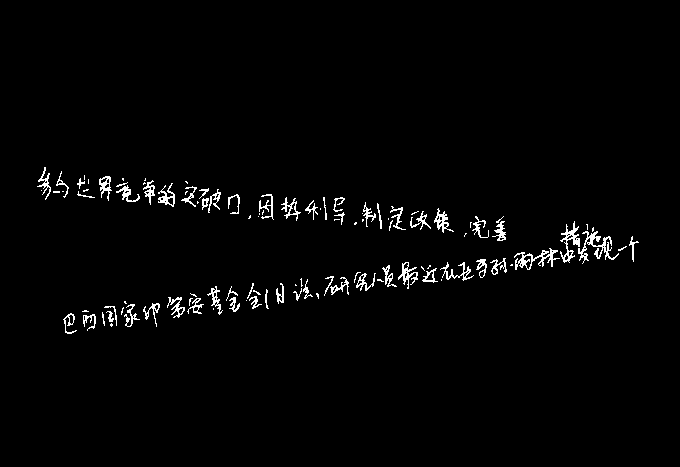 参与世界竞争的突破口,因势利导,制定政策,完善措施
巴西国家印第安基金会1日说,研究人员最近在亚马孙雨林中发现一个